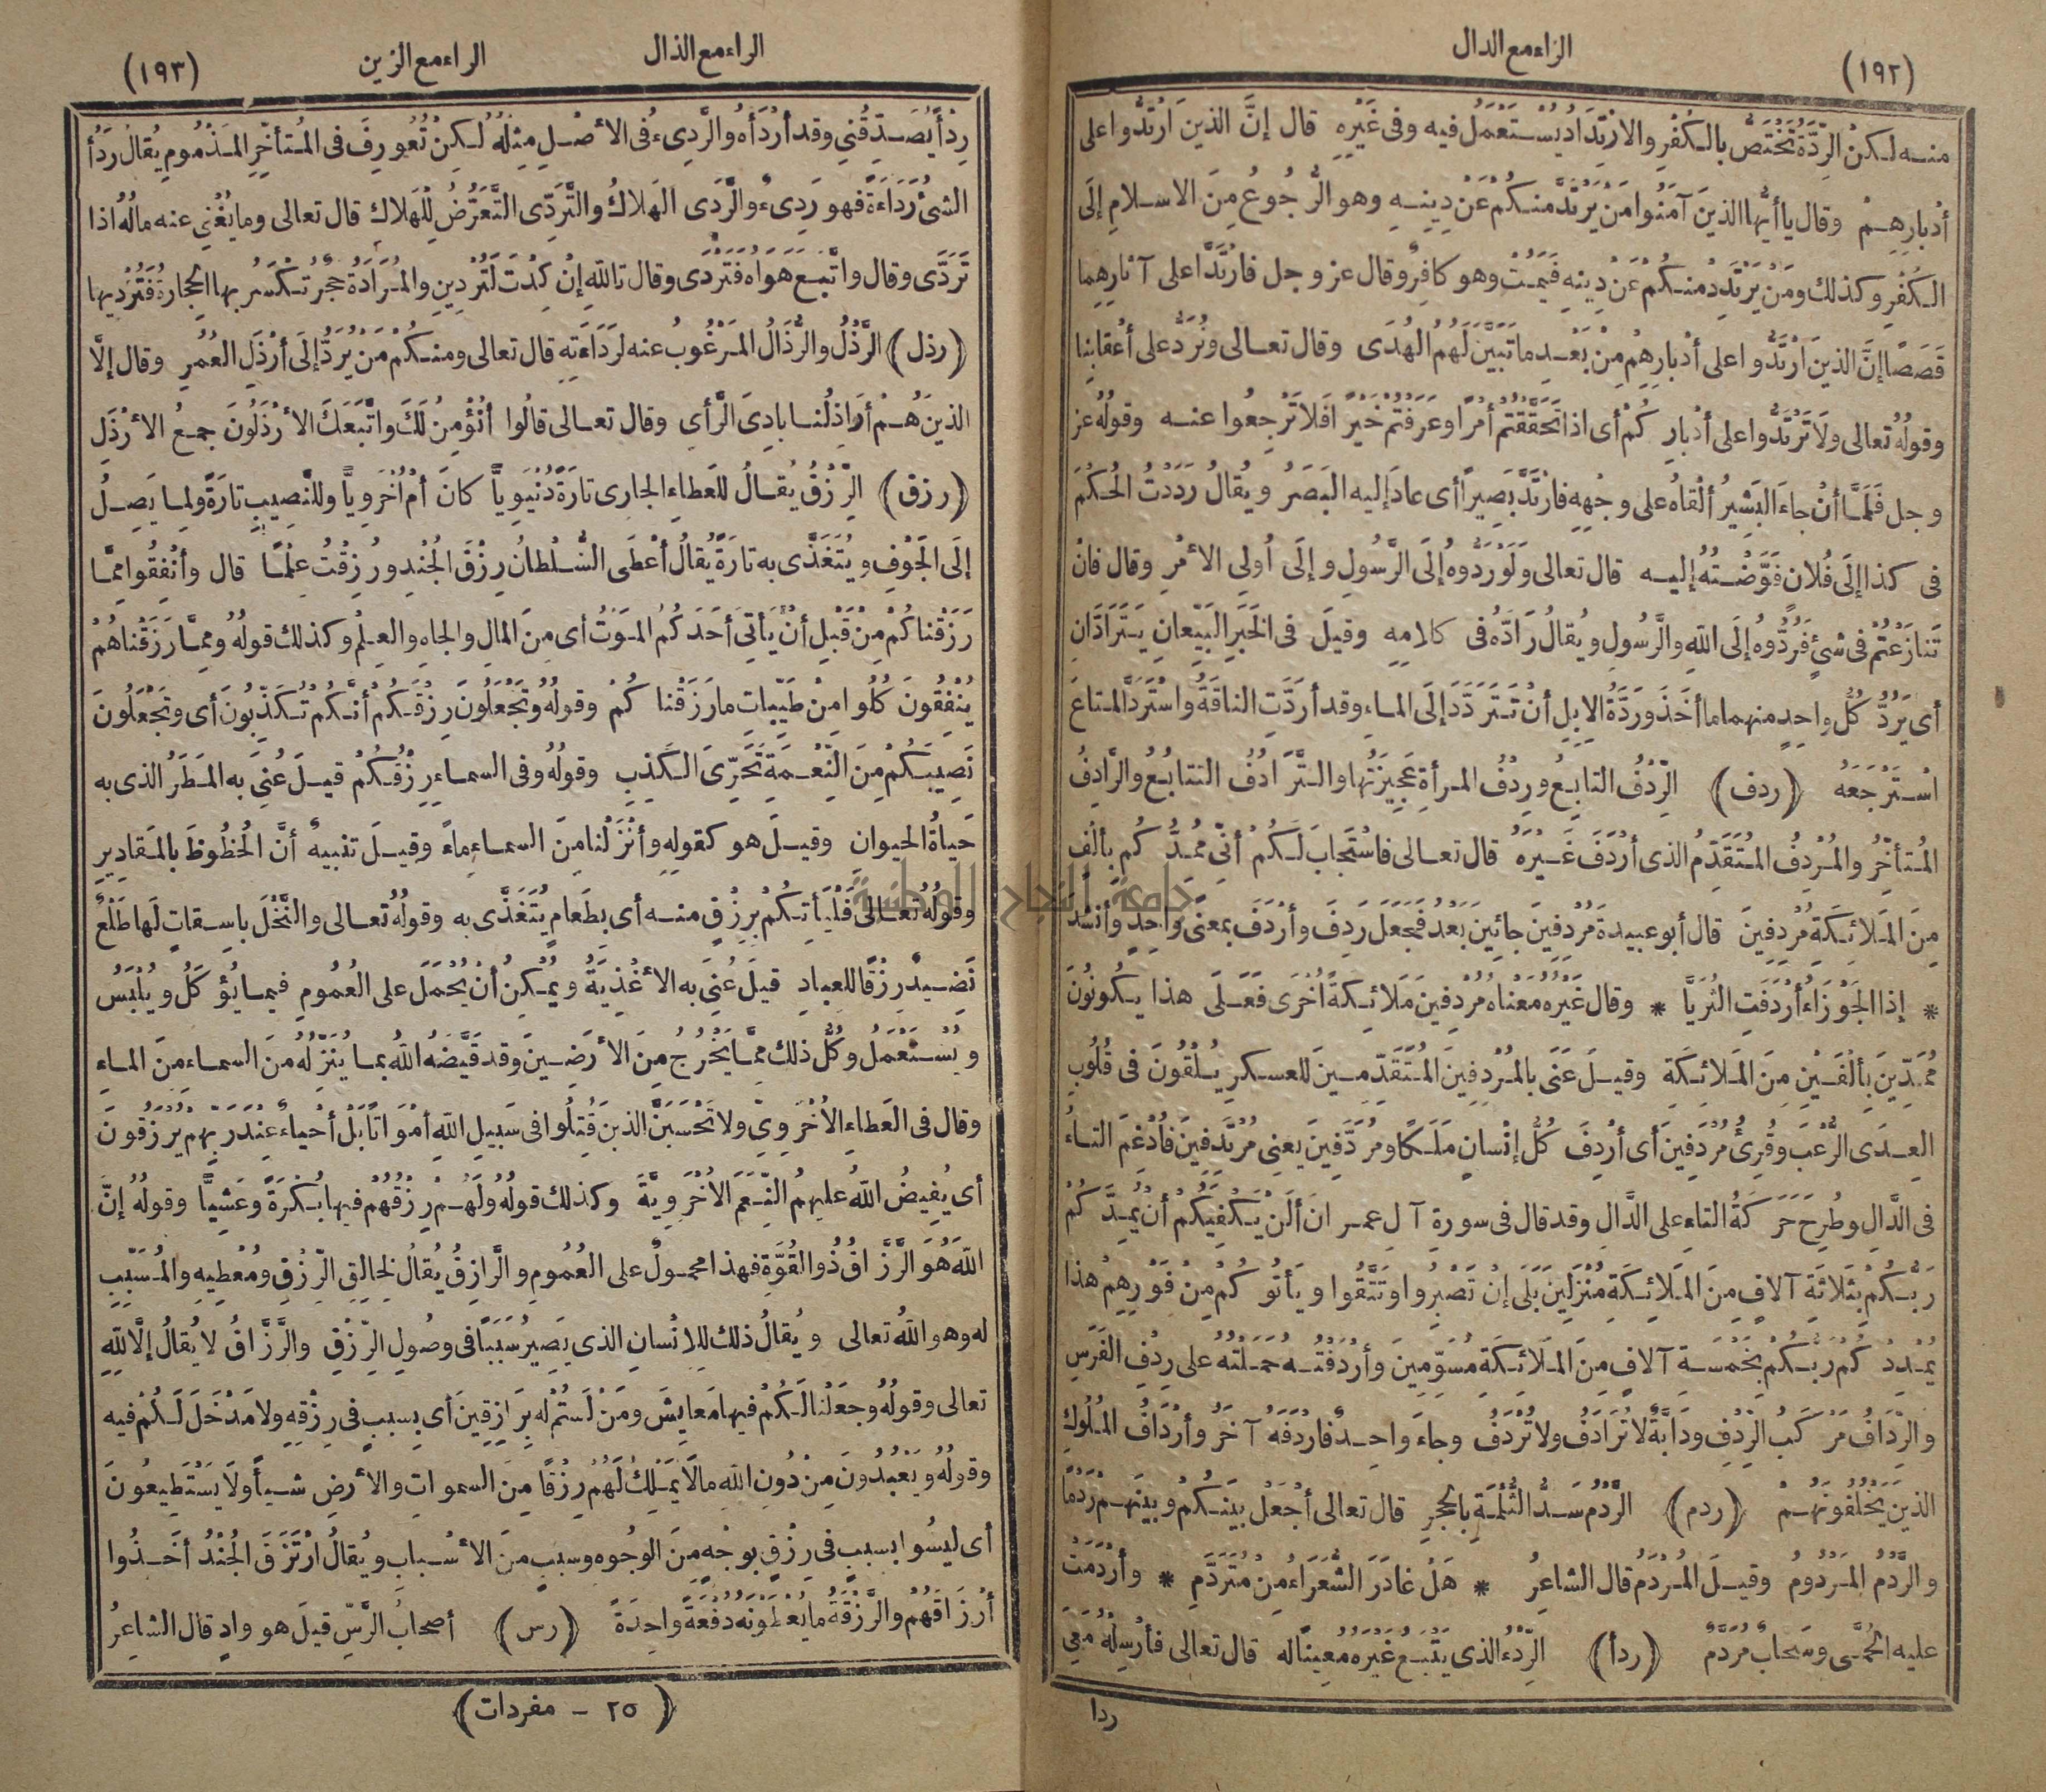 (١٩٢)
الراء مع الدال
منه لكن الرِّدَّةُ تَخْتَصُّ بالكُفْرِ والارْتِدَادُ يُسْتَعْمَلُ فيه وفى غَيْرِهِ قال إنَّ الذينَ ارْتَدُّوا على
أدْبارِهِمْ وقال يا أيُّها الذينَ آمَنُوا مَنْ يَرْتَدَّ مِنكُمْ عَنْ دِينِهِ وهو الرُّجُوعُ مِنَ الاسلامِ إلَى
الكُفْرِ وكذلك ومَنْ يَرْتَدِدْ مِنكُمْ عَنْ دِينِهِ فَيَمُتْ وهو كافِرٌ وقال عز وجل فارْتَدَّا على آثارِهِما
قَصَصًا إنَّ الذينَ ارْتَدُّوا على أدْبارِهِمْ مِنْ بَعْدِ ما تَبَيَّنَ لَهُمُ الهُدَى وقال تعالى ونُرَدُّ على أعْقابِنا
وقولُهُ تعالى ولَا تَرْتَدُّوا على أدْبارِكُمْ أى اذا تَحَقَّقْتُمْ أمْرًا وعَرَفْتُمْ خَيْرًا فَلا تَرْجِعُوا عنه وقولُهُ عز
وجل فَلَمَّا أنْ جاءَ البَشِيرُ ألْقاهُ على وجْهِهِ فارْتَدَّ بَصِيرًا أى عادَ إليه البَصَرُ ويُقالُ رَدَدْتُ الحُكْمَ
فى كذا إلَى فُلان فَوَّضْتُهُ إليه قال تعالى ولَوْ رَدُّوهُ إلَى الرَّسُولِ وإلَى أُولِى الأمْرِ وقال فانْ
تَنازَعْتُمْ فى شئٍ فَرُدُّوهُ إلَى اللهِ والرَّسُولِ ويُقالُ رَادَّهُ فى كلامِهِ وقيلَ فى الخَبَرِ البَيِّعانِ يَتَرَادَّانِ
أى يَرُدُّ كُلُّ واحِدٍ منهما ما أخَذَ ورَدَّةُ الابِلِ أنْ تَتَرَدَّدَ إلَى الماءِ وقد أرَدَّتِ الناقَةُ واسْتَرَدَّ المتاعَ
اسْتَرْجَعَهُ (ردف) الرِّدْفُ التابِعُ ورِدْفُ المرأةِ عَجِيزَتُها والتَّرَادُفُ التتابُعُ والرَّادِفُ
المُتأخِّرُ والمُرْدِفُ المُتَقَدِّمُ الذى أرْدَفَ غَيْرَهُ قال تعالى فاسْتَجابَ لَكُمْ أنِّى مُمِدُّكُم بألْفٍ
مِنَ المَلائِكَةِ مُرْدِفِينَ قال أبو عبيدةَ مُرْدِفِينَ جائِينَ بَعْدُ فَجَعَلَ رَدِفَ وأرْدَفَ بمعنًى واحِدٍ وأنشد
* إذا الجَوْزَاءُ أرْدَفَتِ الثُّرَيَّا * وقال غَيْرُهُ معناهُ مُرْدِفِينَ مَلائِكَةً أُخْرَى فَعَلَى هذا يكُونُونَ
مُمِدِّينَ بِألْفَيْنِ مِنَ المَلائِكَةِ وقيلَ عَنَى بالمُرْدِفِينَ المُتَقَدِّمِينَ للعسكرِ يُلْقُونَ فى قُلُوبِ
العِدَى الرُّعْبَ وقُرِئَ مُرْدَفِينَ أى أُرْدِفَ كُلُّ إنْسانٍ مَلَكًا ومُرَدَّفِينَ يعنى مُرْتَدِفِينَ فأُدْغِمَ التاءُ
فى الدَّالِ وطُرِحَ حَرَكَةُ التاءِ على الدَّالِ وقد قال فى سورةِ آل عمران ألَنْ يَكْفِيَكُمْ أنْ يُمِدَّكُمْ
رَبُّكُمْ بثَلَاثَةِ آلافٍ مِنَ المَلائِكَةِ مُنْزَلِينَ بَلَى إنْ تَصْبِرُوا وتَتَّقُوا ويَأتُوكُمْ مِنْ فَوْرِهِمْ هٰذا
يُمْدِدْكُمْ رَبُّكُمْ بخَمْسَةِ آلافٍ مِنَ المَلائِكَةِ مُسَوِّمِينَ وأرْدَفْتُهُ حَمَلْتُهُ على رِدْفِ الفَرَسِ
والرِّدَافُ مَرْكَبُ الرِّدْفِ ودَابَّةٌ لا تُرَادَفُ ولا تُرْدَفُ وجاءَ واحِدٌ فارْدَفَهُ آخَرُ وأرْدَافُ المُلُوكِ
الذينَ يَخْلُفُونَهُمْ (ردم) الرَّدْمُ سَدُّ الثُّلْمَةِ بالحَجَرِ قال تعالى أجْعَلْ بينَكُمْ وبينَهم رَدْمًا
والرَّدْمُ المَرْدُومُ وقيلَ المُرْدَمُ قال الشاعِرُ * هَلْ غادَرَ الشُّعَرَاءُ مِنْ مُتَرَدَّمِ * وأرْدَمَتْ
عليه الحُمَّى وسَحابٌ مُرْدَمٌ (ردأ) الرِّدْءُ الذى يَتْبَعُ غَيْرَهُ مُعِينًا له قال تعالى فأرْسِلْهُ مَعِىَ
ردا
الراء مع الذال
الراء مع الزين
(١٩٣)
رِدْأً يُصَدِّقُنِى وقد أرْدَأهُ والرَّدِىءُ فى الأصْلِ مِثْلُهُ لكِنْ تُعُورِفَ فى المُتأخِّرِ المَذْمُومِ يُقالُ رَدَأَ
الشئُ رَدَاءَةً فهو رَدِىءٌ والرَّدَى الهَلاكُ والتَّرَدِّى التَّعَرُّضُ لِلْهَلاكِ قال تعالى وما يُغْنِى عنه مالُهُ اذا
تَرَدَّى وقال واتَّبَعَ هَوَاهُ فَتَرْدَى وقال تاللهِ إنْ كِدْتَ لَتُرْدِينِ والمُرَادَةُ حَجَرٌ تُكْسَرُ بها الحِجارَةُ فَتُرْدِيها
(رذل) الرَّذْلُ والرُّذَالُ المَرْغُوبُ عنه لرَدَاءَتِهِ قال تعالى ومنكُمْ مَنْ يُرَدُّ إلَى أرْذَلِ العُمُرِ وقال إلَّا
الذينَ هُمْ أرَاذِلُنا بادِىَ الرَّأىِ وقال تعالى قالُوا أنُؤْمِنُ لَكَ واتَّبَعَكَ الأرْذَلُونَ جمعُ الأرْذَلِ
(رزق) الرِّزْقُ يُقالُ للعَطاءِ الجارى تارَةً دُنْيَوِيًّا كانَ أمْ أُخْرَوِيًّا وللنَّصِيبِ تارَةً ولِما يَصِلُ
إلَى الجَوْفِ ويُتَغَذَّى به تارَةً يُقالُ أعْطَى السُّلْطانُ رِزْقَ الجُنْدِ ورُزِقْتُ عِلْمًا قال وأنْفِقُوا مِمَّا
رَزَقْناكُمْ مِنْ قَبْلِ أنْ يَأتِىَ أحَدَكُمُ المَوْتُ أى مِنَ المالِ والجاهِ والعِلْمِ وكذلك قولُهُ ومِمَّا رَزَقْناهُمْ
يُنْفِقُونَ كُلُوا مِنْ طَيِّباتِ ما رَزَقْناكُمْ وقولُهُ وتَجْعَلُونَ رِزْقَكُمْ أنَّكُمْ تُكَذِّبُونَ أى وتَجْعَلُونَ
نَصِيبَكُمْ مِنَ النِّعْمَةِ تَحَرِّىَ الكَذِبِ وقولُهُ وفى السماءِ رِزْقُكُمْ قيلَ عُنِىَ به المَطَرُ الذى به
حَياةُ الحيوانِ وقيلَ هو كقولِهِ وأنْزَلْنا مِنَ السماءِ ماءً وقيلَ تنبيهٌ أنَّ الحُظُوظَ بالمَقادِيرِ
وقولُهُ تعالى فَلْيَأتِكُمْ بِرِزْقٍ منه أى بطَعامٍ يُتَغَذَّى به وقولُهُ تعالى والنَّخْلَ باسِقاتٍ لَها طَلْعٌ
نَضِيدٌ رِزْقًا للعباد قيلَ عُنِىَ به الأغْذِيَةُ ويُمْكِنُ أنْ يُحْمَلَ على العُمُومِ فيما يُؤْكَلُ ويُلْبَسُ
ويُسْتَعْمَلُ وكُلُّ ذلك مِمَّا يَخْرُجُ مِنَ الأرَضِينَ وقد قَيَّضَهُ اللهُ بما يُنَزِّلُهُ مِنَ السماءِ مِنَ الماءِ
وقال فى العَطاءِ الأُخْرَوِىِّ ولا تَحْسَبَنَّ الذينَ قُتِلُوا فى سَبِيلِ اللهِ أمْوَاتًا بَلْ أحْياءٌ عِنْدَ رَبِّهِم يُرْزَقُونَ
أى يُفِيضُ اللهُ عليهِمُ النِّعَمَ الأُخْرَوِيَّةَ وكذلك قولُهُ ولَهُمْ رِزْقُهُمْ فيها بُكْرَةً وعَشِيًّا وقولُهُ إنَّ
اللهَ هُوَ الرَّزَّاقُ ذُو القُوَّةِ فهذا محمولٌ على العُمُومِ والرَّازِقُ يُقالُ لخالِقِ الرِّزْقِ ومُعْطِيهِ والمُسَبِّبِ
له وهو اللهُ تعالى ويُقالُ ذلك للانْسانِ الذى يَصِيرُ سَبَبًا فى وصُولِ الرِّزْقِ والرَّزَّاقُ لا يُقالُ إلَّا للهِ
تعالى وقولُهُ وجَعَلْنا لَكُمْ فيها مَعايِشَ ومَنْ لَسْتُمْ له بِرَازِقِينَ أى بسببٍ فى رِزْقِهِ ولا مَدْخَلَ لَكُمْ فيه
وقولُهُ ويَعْبُدُونَ مِنْ دُونِ اللهِ مالَا يَمْلِكُ لَهُمْ رِزْقًا مِنَ السموات والأرضِ شيأً ولَا يَسْتَطِيعُونَ
أى لَيسُوا بسببٍ فى رِزْقٍ بوجْهٍ مِنَ الوجُوه وسببٍ مِنَ الأسْبابِ ويُقالُ ارْتَزَقَ الجُنْدُ أخَذُوا
أرْزَاقَهُمْ والرَّزْقَةُ ما يُعْطَوْنَه دَفْعَةً واحِدَةً (رس) أصحابُ الرَّسِّ قيلَ هو وادٍ قال الشاعِرُ
(٢٥ - مفردات)
جامعة النجاح الوطنية